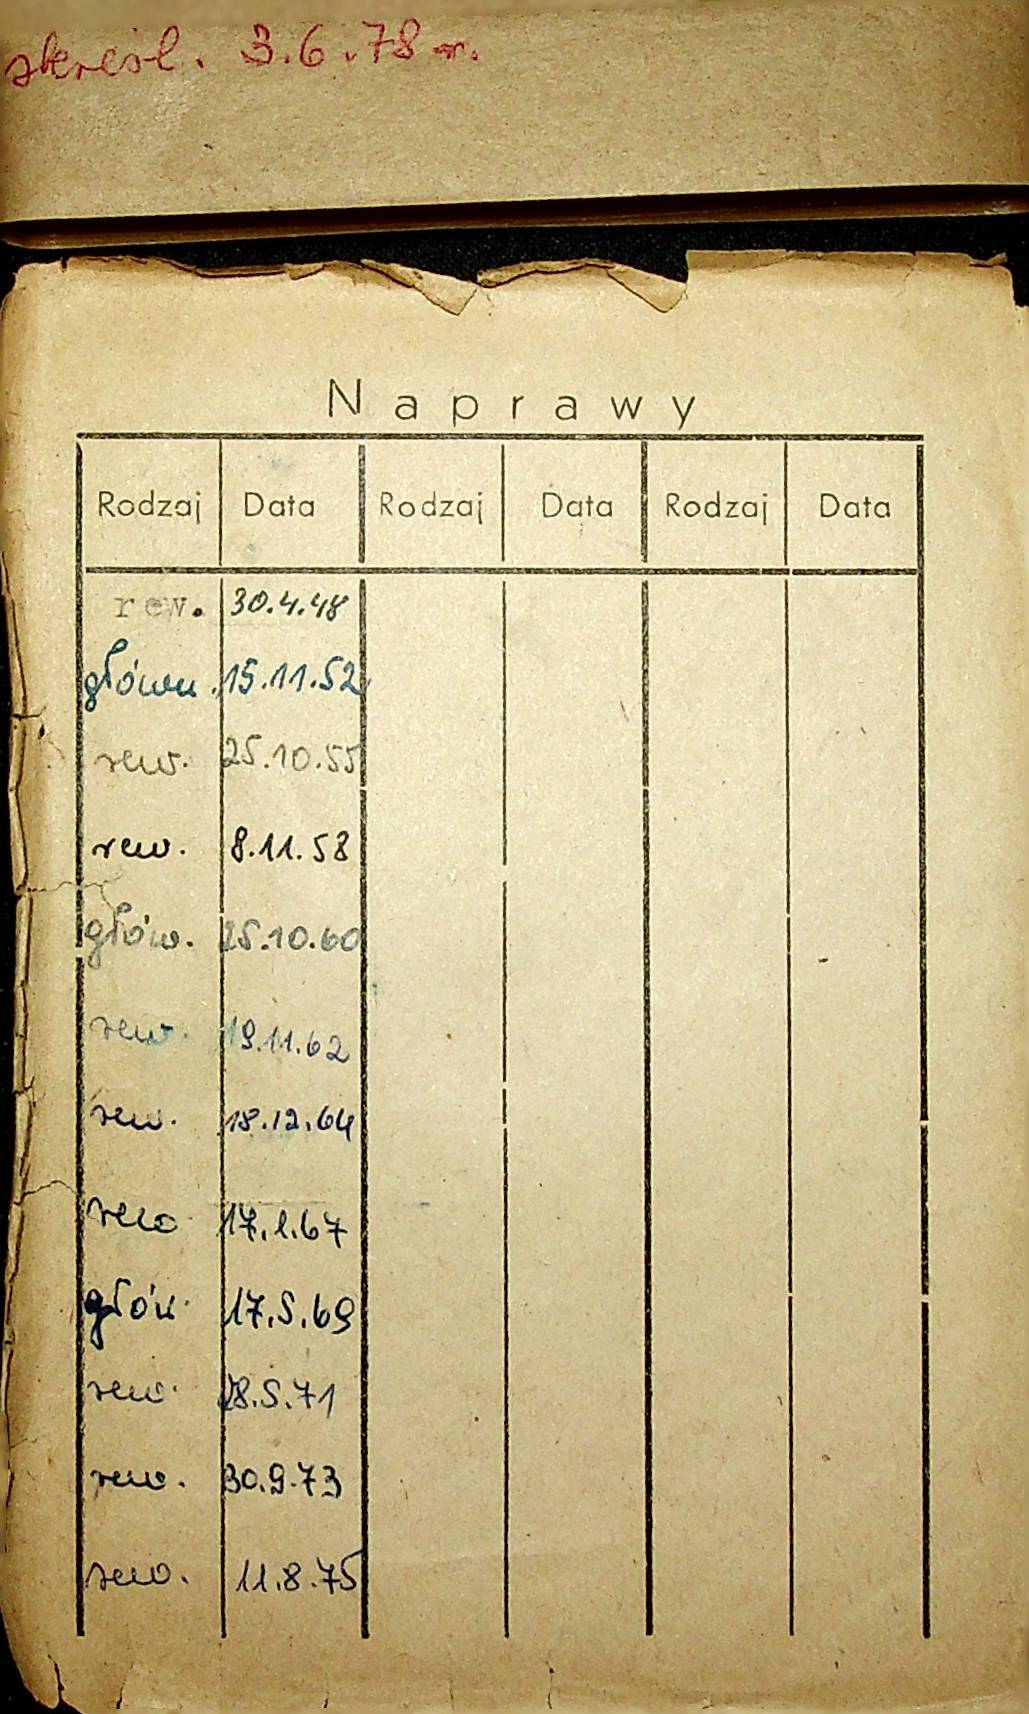 skreśl. 3.6.78 r.
Naprawy
Rodzaj Data Rodzaj Data Rodzaj Data
rew. 30.4.48
główn. 15.11.52
rew. 25.10.55
rew. 8.11.58
głów. 25.10.60
rew. 19.11.62
rew. 18.12.64
rew 17.1.67
głów. 17.5.69
rew. 28.5.71
rew. 30.9.73
rew. 11.8.75